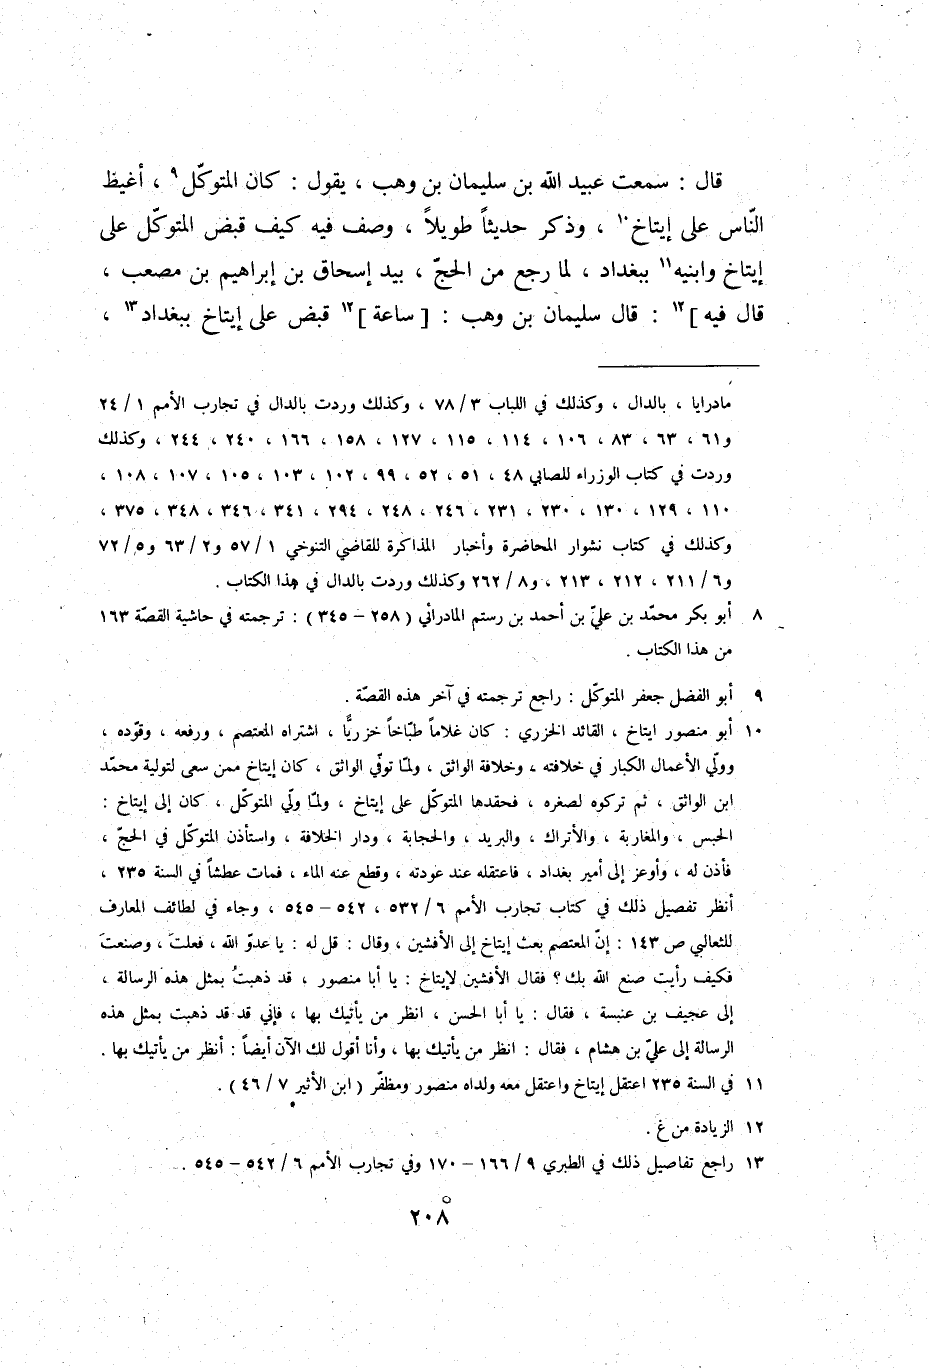 قال : سمعت عبيد الله بن سليمان بن وهب ، يقول : كان المتوكّل٩ ، أغيظ
النّاس على إيتاخ١٠ ، وذكر حديثاً طويلاً ، وصف فيه كيف قبض المتوكّل على
إيتاخ وابنيه١١ ببغداد ، لما رجع من الحجّ ، بيد إسحاق بن إبراهيم بن مصعب ،
قال فيه ]١٢ : قال سليمان بن وهب : [ ساعة ]١٢ قبض على إيتاخ ببغداد١٣ ،
مادرايا ، بالدال ، وكذلك في اللباب ٣ / ٧٨ ، وكذلك وردت بالدال في تجارب الأمم ١ / ٢٤
و٦١ ، ٦٣ ، ٨٣ ، ١٠٦ ، ١١٤ ، ١١٥ ، ١٢٧ ، ١٥٨ ، ١٦٦ ، ٢٤٠ ، ٢٤٤ ، وكذلك
وردت في كتاب الوزراء للصابي ٤٨ ، ٥١ ، ٥٢ ، ٩٩ ، ١٠٢ ، ١٠٣ ، ١٠٥ ، ١٠٧ ، ١٠٨ ،
١١٠ ، ١٢٩ ، ١٣٠ ، ٢٣٠ ، ٢٣١ ، ٢٤٦ ، ٢٤٨ ، ٢٩٤ ، ٣٤١ ، ٣٤٦ ، ٣٤٨ ، ٣٧٥ ،
وكذلك في كتاب نشوار المحاضرة وأخبار المذاكرة للقاضي التنوخي ١ / ٥٧ و٢ / ٦٣ و٥ / ٧٢
و٦ / ٢١١ ، ٢١٢ ، ٢١٣ ، و٨ / ٢٦٢ وكذلك وردت بالدال في هذا الكتاب .
٨ أبو بكر محمّد بن عليّ بن أحمد بن رستم المادرائي ( ٢٥٨ – ٣٤٥ ) : ترجمته في حاشية القصّة ١٦٣
من هذا الكتاب .
٩ أبو الفضل جعفر المتوكّل : راجع ترجمته في آخر هذه القصّة .
١٠ أبو منصور ايتاخ ، القائد الخزري : كان غلاماً طبّاخاً خزريًّا ، اشتراه المعتصم ، ورفعه ، وقوّده ،
وولّي الأعمال الكبار في خلافته ، وخلافة الواثق ، ولمّا توفّي الواثق ، كان إيتاخ ممن سعى لتولية محمّد
ابن الواثق ، ثم تركوه لصغره ، فحقدها المتوكّل على إيتاخ ، ولمّا ولّي المتوكّل ، كان إلى إيتاخ :
الحبس ، والمغاربة ، والأتراك ، والبريد ، والحجابة ، ودار الخلافة ، واستأذن المتوكّل في الحجّ ،
فأذن له ، وأوعز إلى أمير بغداد ، فاعتقله عند عودته ، وقطع عنه الماء ، فمات عطشاً في السنة ٢٣٥ ،
أنظر تفصيل ذلك في كتاب تجارب الأمم ٦ / ٥٣٢ ، ٥٤٢ – ٥٤٥ ، وجاء في لطائف المعارف
للثعالبي ص ١٤٣ : إنّ المعتصم بعث إيتاخ إلى الأفشين ، وقال : قل له : يا عدوّ الله ، فعلتَ ، وصنعتَ
فكيف رأيت صنع الله بك ؟ فقال الأفشين لإيتاخ : يا أبا منصور ، قد ذهبتُ بمثل هذه الرسالة ،
إلى عجيف بن عنبسة ، فقال : يا أبا الحسن ، انظر من يأتيك بها ، فإني قد قد ذهبت بمثل هذه
الرسالة إلى عليّ بن هشام ، فقال : انظر من يأتيك بها ، وأنا أقول لك الآن أيضاً : أنظر من يأتيك بها .
١١ في السنة ٢٣٥ اعتقل إيتاخ واعتقل معه ولداه منصور ومظفّر ( ابن الأثير ٧ / ٤٦ ) .
١٢ الزيادة من غ .
١٣ راجع تفاصيل ذلك في الطبري ٩ / ١٦٦ – ١٧٠ وفي تجارب الأمم ٦ / ٥٤٢ – ٥٤٥ .
٢٠٨